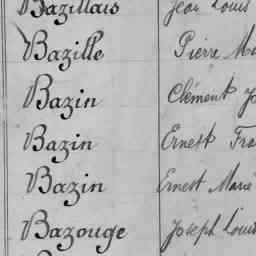 Bazillais Jean Louis
Bazille Pierre
Bazin Clément
Bazin Ernest
Bazin Ernest Marie
Bazouge Joseph Louis